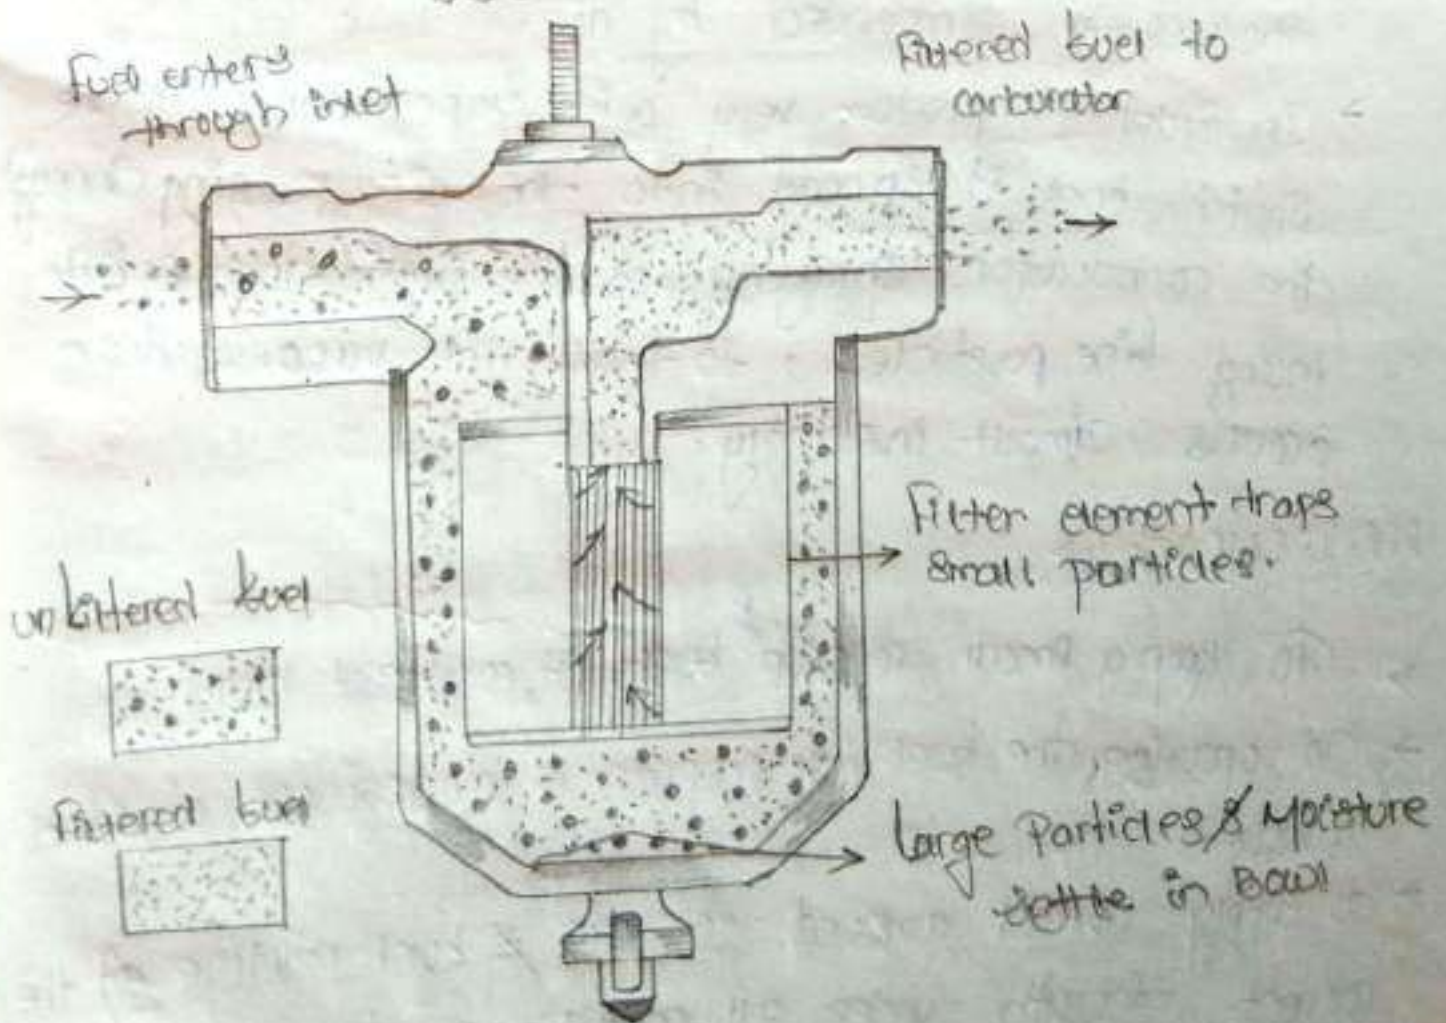 Fuel enters
through inlet
Filtered fuel to
carburator
Filter element traps
small particles.
unfiltered fuel
Filtered fuel
Large Particles & Moisture
settle in Bowl